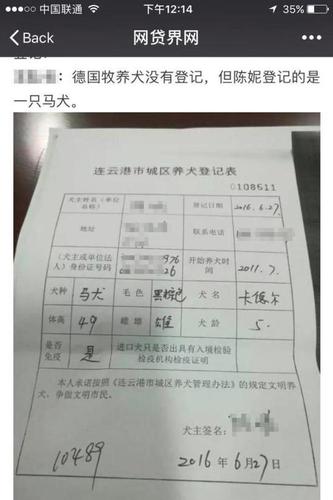 中国联通 下午12:14 35%
网贷界网
登记:
：德国牧养犬没有登记，但陈妮登记的是
一只马犬。
连云港市城区养犬登记表
0108511
犬主姓名（单位名称） 登记日期 2016.6.27
地址 联系电话
（犬主或单位法人）身份证号码 976 26 开始养犬时间 2011.7.
犬种 马犬 毛色 黑棕色 犬名 卡德尔
体高 49 雌雄 雄 犬龄 5.
是否免疫 是 进口犬只是否出具有入境检验检疫机构检疫证明
本人承诺按照《连云港市城区养犬管理办法》的规定文明养
犬，争做文明市民。
犬主签名：
10489 2016年6月27日